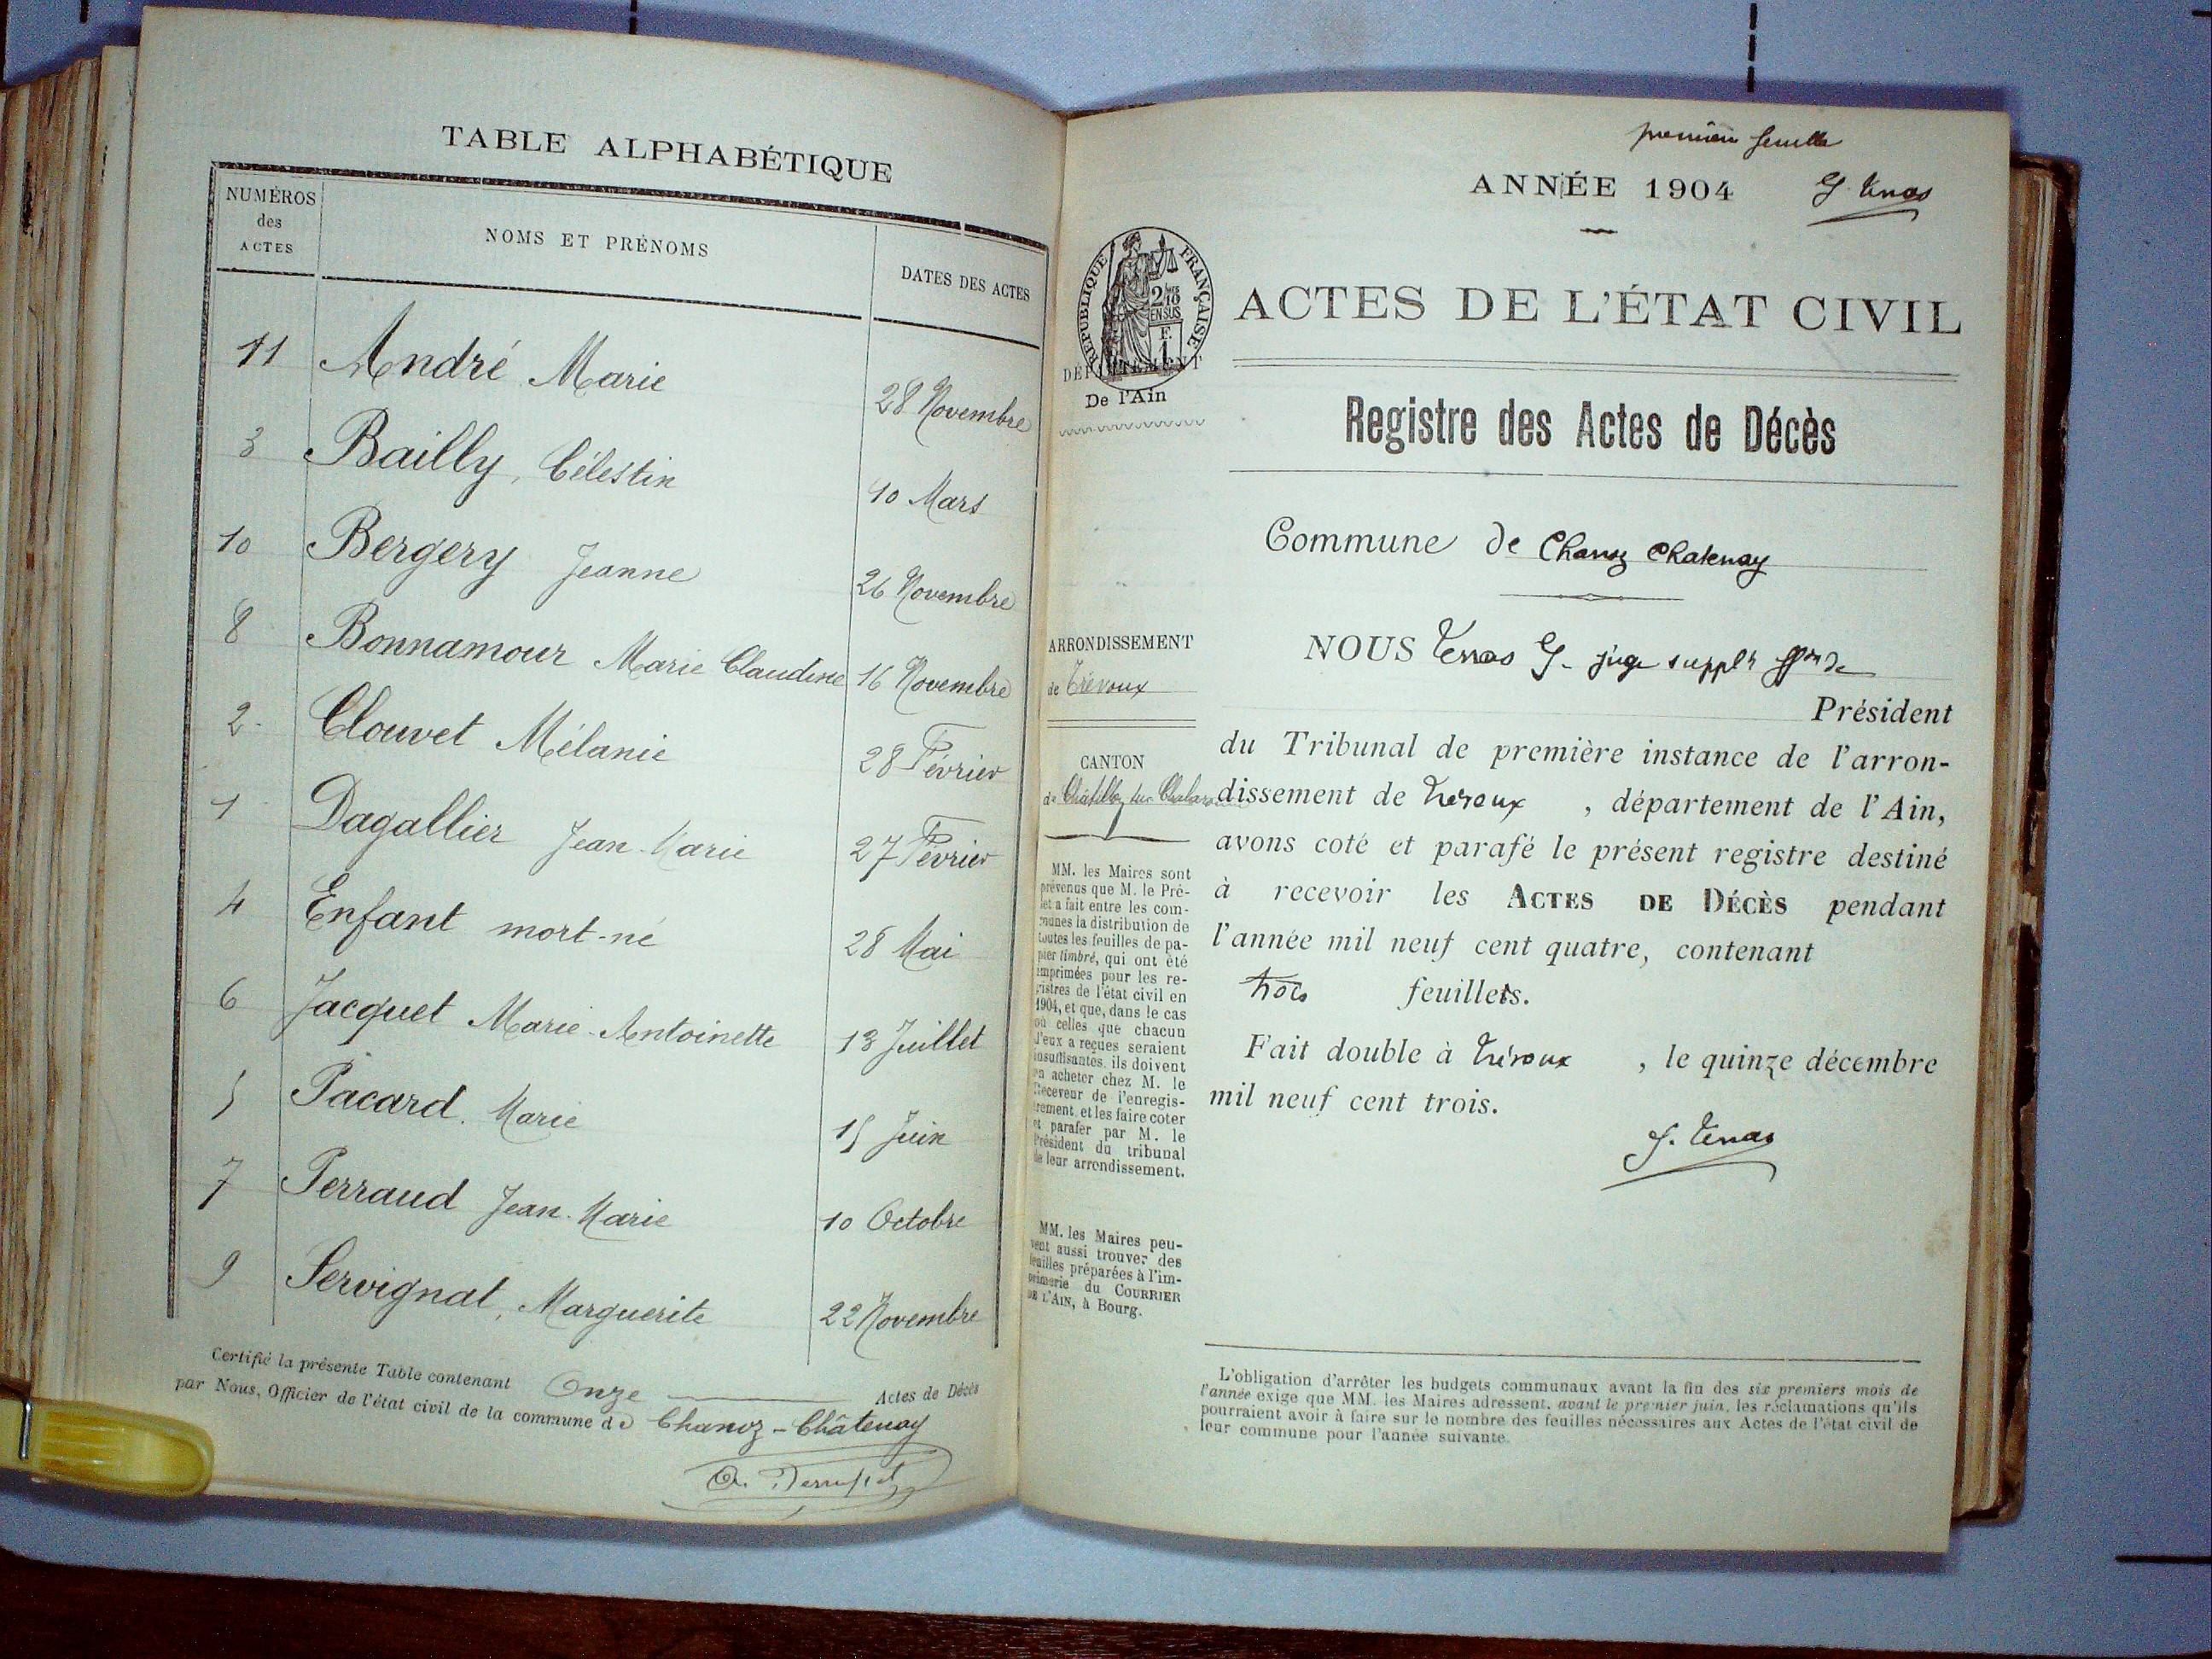 TABLE ALPHABÉTIQUE
NUMÉROS
des
ACTES
NOMS ET PRÉNOMS
DATES DES ACTES
11 André Marie 28 Novembre
3 Bailly, Célestin 10 Mars
10 Bergery Jeanne 26 Novembre
8 Bonnamour Marie Claudine 16 Novembre
2 Clouvet Mélanie 28 Février
1 Dagallier Jean-Marie 27 Février
4 Enfant mort-né 28 Mai
6 Jacquet Marie-Antoinette 13 Juillet
5 Pacard Marie 15 Juin
7 Perraud Jean-Marie 10 Octobre
9 Servignat, Marguerite 22 Novembre
Certifié la présente Table contenant Onze Actes de Décès
par Nous, Officier de l'état civil de la commune de Chanoz-Châtenay
première feuille
ANNÉE 1904
RÉPUBLIQUE FRANÇAISE
2/10
EN SUS
F.
1
DÉPARTEMENT
De l'Ain
ACTES DE L'ÉTAT CIVIL
Registre des Actes de Décès
Commune de Chanoz Chatenay
ARRONDISSEMENT
de Trévoux
CANTON
de Châtillon sur Chalaronne
MM. les Maires sont
prévenus que M. le Pré-
fet a fait entre les com-
munes la distribution de
toutes les feuilles de pa-
pier timbré, qui ont été
imprimées pour les re-
gistres de l'état civil en
1904, et que, dans le cas
où celles que chacun
d'eux a reçues seraient
insuffisantes, ils doivent
en acheter chez M. le
Receveur de l'enregis-
trement, et les faire coter
et parafer par M. le
Président du tribunal
de leur arrondissement.
MM. les Maires peu-
vent aussi trouver des
feuilles préparées à l'im-
primerie du COURRIER
DE L'AIN, à Bourg.
NOUS juge suppl
Président
du Tribunal de première instance de l'arron-
dissement de Trévoux, département de l'Ain,
avons coté et parafé le présent registre destiné
à recevoir les ACTES DE DÉCÈS pendant
l'année mil neuf cent quatre, contenant
trois feuillets.
Fait double à Trévoux, le quinze décembre
mil neuf cent trois.
L'obligation d'arrêter les budgets communaux avant la fin des six premiers mois de
l'année exige que MM. les Maires adressent, avant le premier juin, les réclamations qu'ils
pourraient avoir à faire sur le nombre des feuilles nécessaires aux Actes de l'état civil de
leur commune pour l'année suivante.